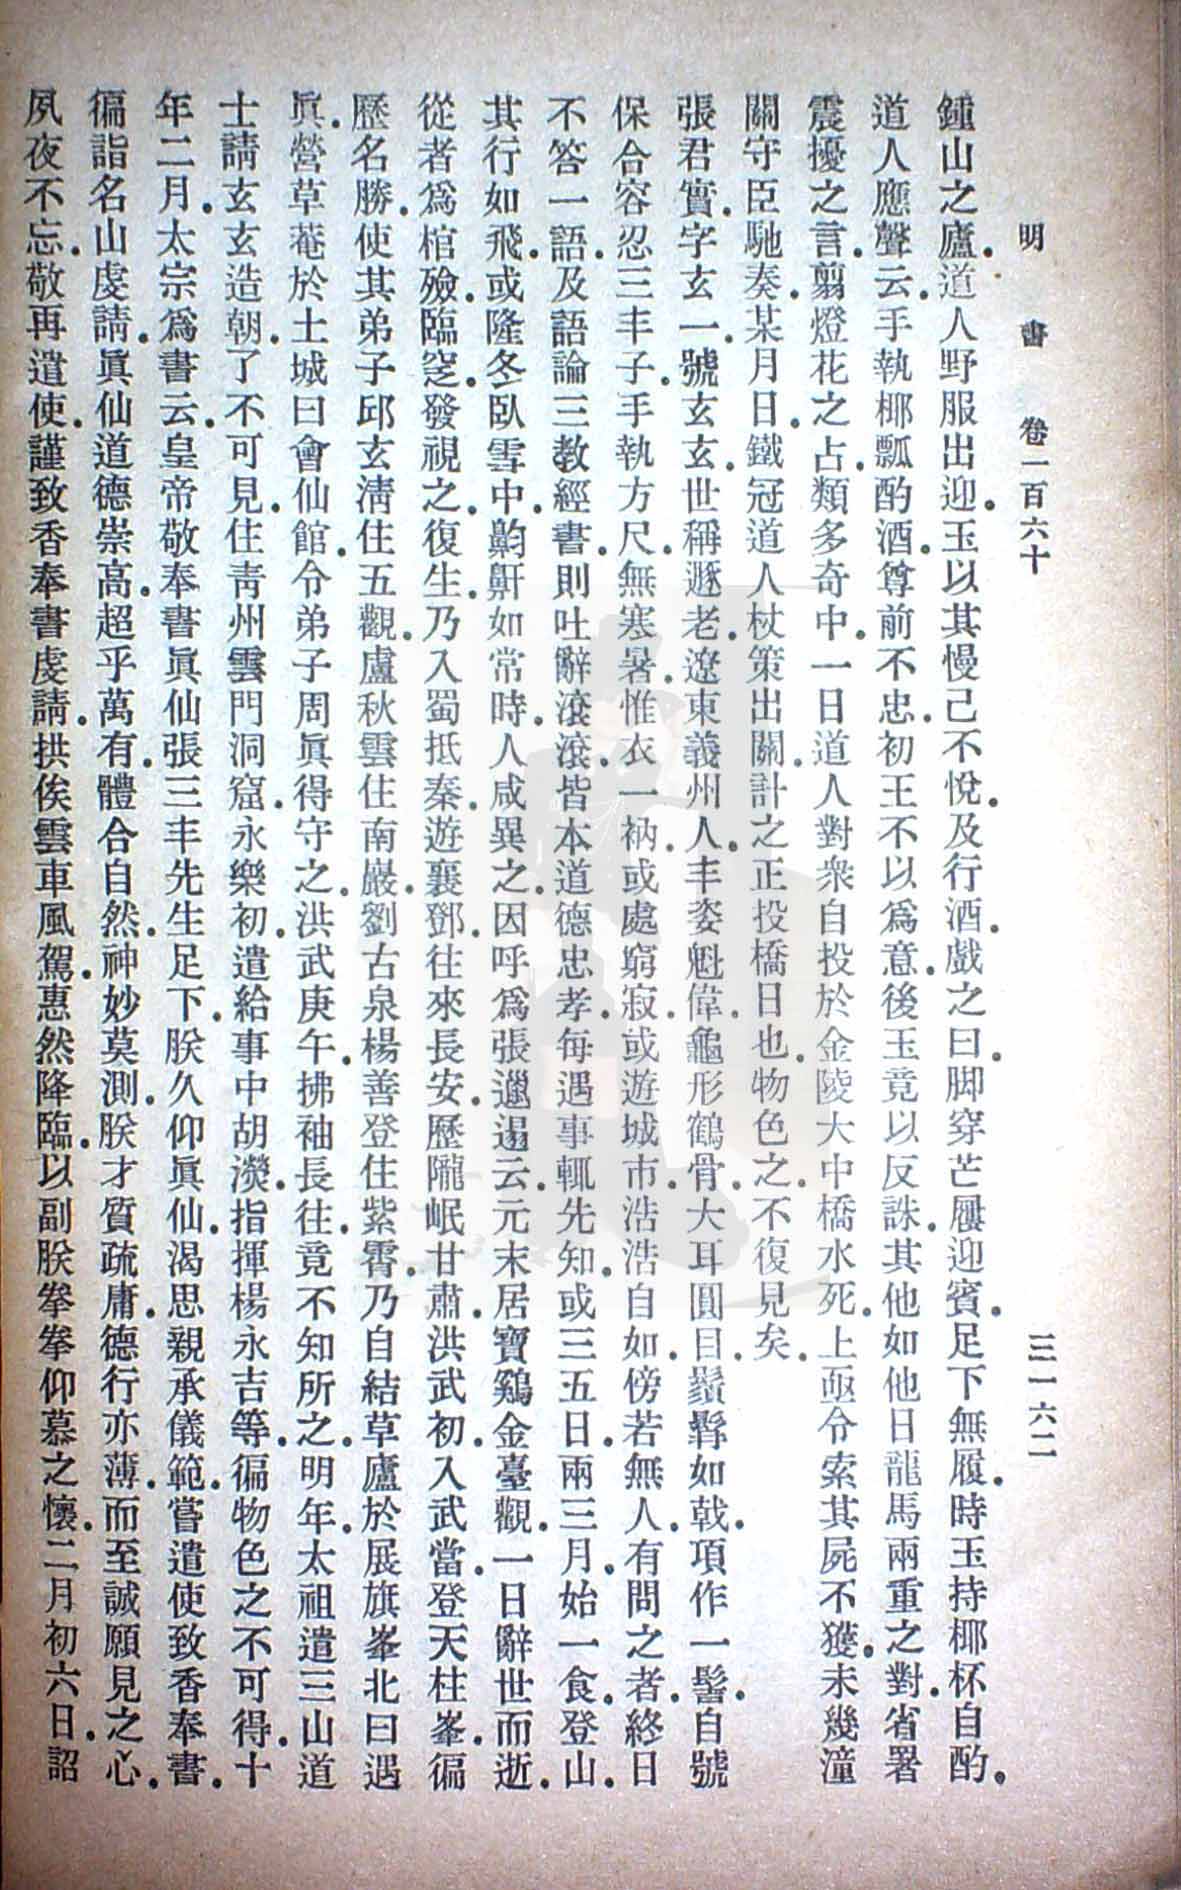 明書 卷一百六十 三一六二
鍾山之廬。道人野服出迎。玉以其慢己不悅。及行酒。戲之曰。脚穿芒屨迎賓。足下無履。時玉持椰杯自酌。
道人應聲云。手執椰瓢酌酒。尊前不忠。初王不以爲意。後玉竟以反誅。其他如他日龍馬兩重之對。省署
震擾之言。翦燈花之占。類多奇中。一日道人對衆自投於金陵大中橋水死。上亟令索其屍不獲。未幾潼
關守臣馳奏。某月日。鐵冠道人杖策出關。計之正投橋日也。物色之。不復見矣。
張君實。字玄一。號玄玄。世稱邋老。遼東義州人。丰姿魁偉。龜形鶴骨。大耳圓目。鬚髯如戟。項作一髻。自號
保合容忍三丰子。手執方尺。無寒暑。惟衣一衲。或處窮寂。或遊城市。浩浩自如。傍若無人。有問之者。終日
不答一語。及語論三教經書。則吐辭滾滾。皆本道德忠孝。每遇事輒先知。或三五日。兩三月。始一食。登山。
其行如飛。或隆冬臥雪中。齁鼾如常時。人咸異之。因呼爲張邋遢云。元末居寶鷄金臺觀。一日辭世而逝。
從者爲棺殮。臨窆。發視之。復生。乃入蜀抵秦。遊襄鄧。往來長安。歷隴岷甘肅。洪武初。入武當。登天柱峯。徧
歷名勝。使其弟子邱玄淸住五觀。盧秋雲住南巖。劉古泉楊善登住紫霄。乃自結草廬於展旗峯北曰遇
眞。營草菴於土城曰會仙館。令弟子周眞得守之。洪武庚午。拂袖長往。竟不知所之。明年。太祖遣三山道
士請玄玄造朝。了不可見。住靑州雲門洞窟。永樂初。遣給事中胡濙。指揮楊永吉等。徧物色之不可得。十
年二月。太宗爲書云。皇帝敬奉書眞仙張三丰先生足下。朕久仰眞仙。渴思親承儀範。嘗遣使致香奉書。
徧詣名山虔請。眞仙道德崇高。超乎萬有。體合自然。神妙莫測。朕才質疏庸。德行亦薄。而至誠願見之心。
夙夜不忘。敬再遣使。謹致香奉書虔請。拱俟雲車風駕。惠然降臨。以副朕拳拳仰慕之懷。二月初六日。詔